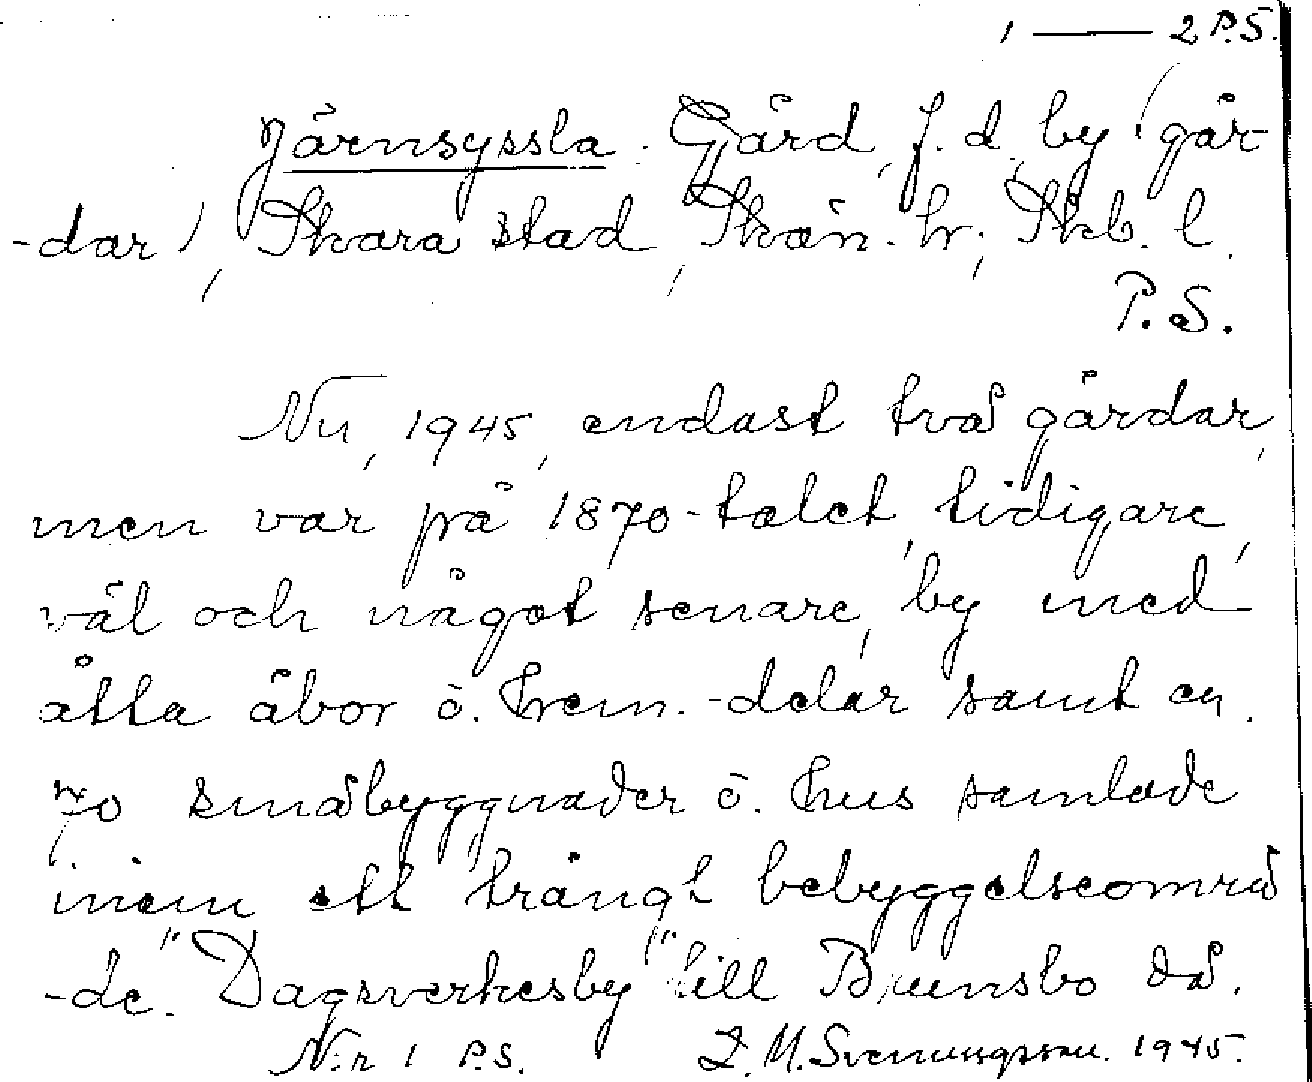 1 — 2 P.S.
Järnsyssla. Gård, f. d. by (går-
-dar), Skara stad, Skån. hr, Skb. l.
P.S.
Nu, 1945, endast två gårdar,
men var på 1870-talet, tidigare,
väl och något senare, by med
åtta åbor o. hem.-delar samt en
70 småbyggnader o. hus samlade
inom ett trångt bebyggelseområ
-de. "Dagsverkesby" till Brunsbo då.
N:r 1 P.S. L. M. Svenungsson. 1945.